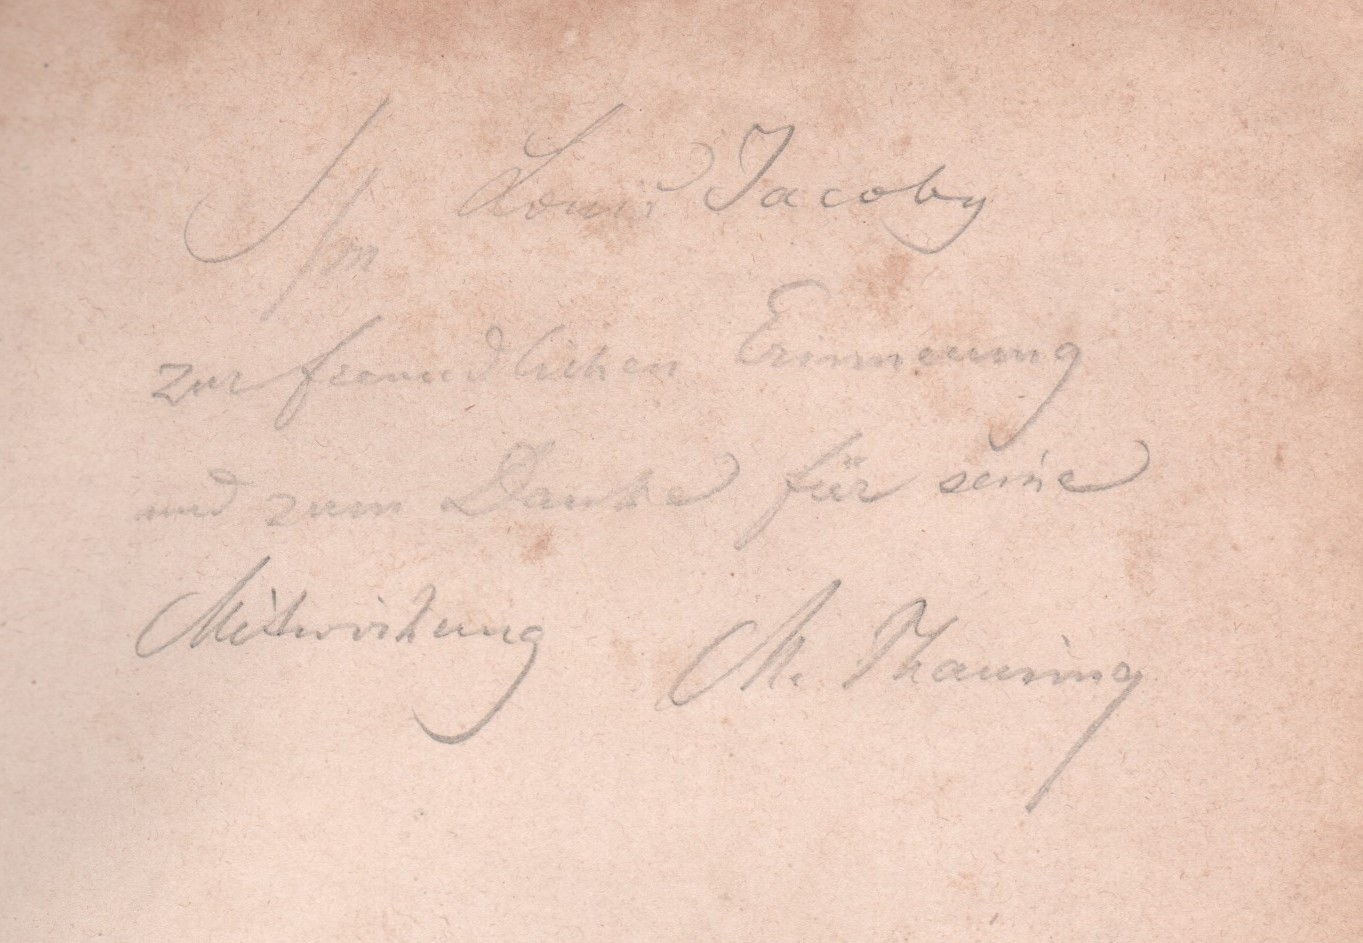 Louis Jacoby
zur freundlichen Erinnerung
und zum Danke für seine
Mitwirkung M. Thausing